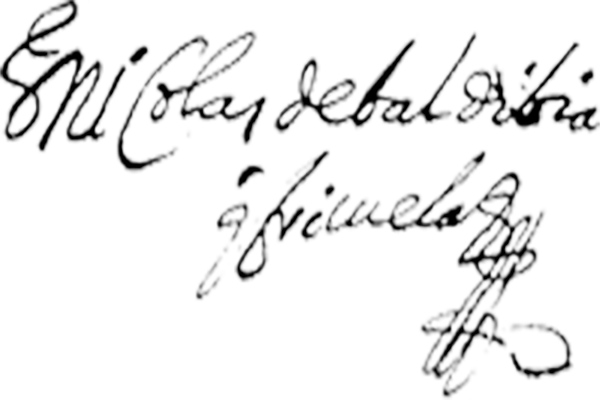 Nicolas de baldibia
y brimuela